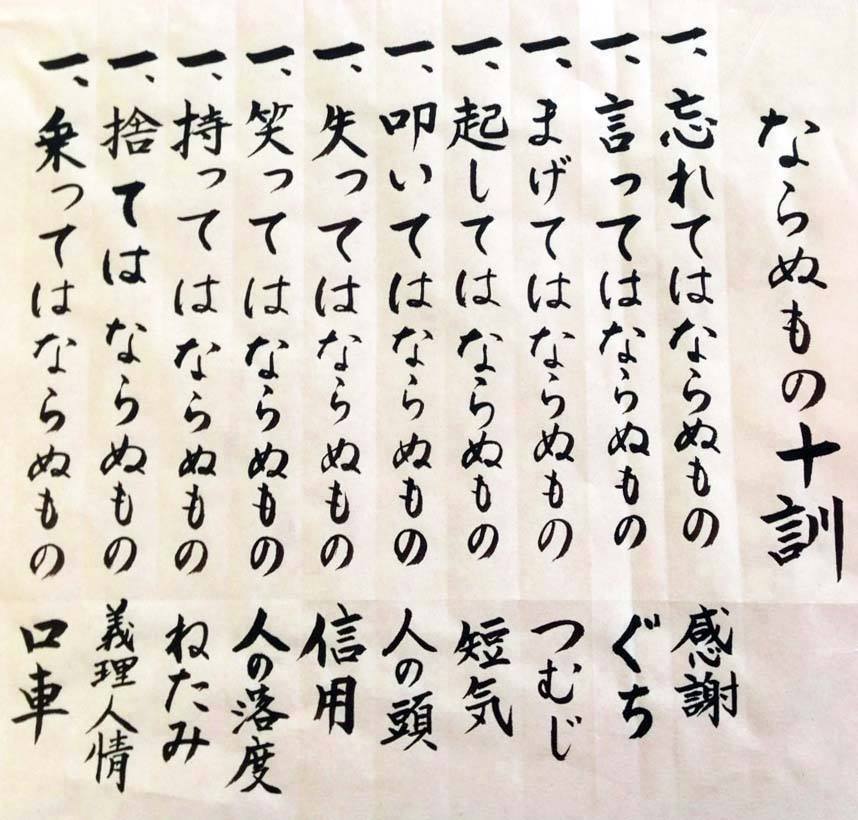 ならぬもの十訓
一、忘れてはならぬもの 感謝
一、言ってはならぬもの ぐち
一、まげてはならぬもの つむじ
一、起してはならぬもの 短気
一、叩いてはならぬもの 人の頭
一、失ってはならぬもの 信用
一、笑ってはならぬもの 人の落度
一、持ってはならぬもの ねたみ
一、捨てはならぬもの 義理人情
一、乗ってはならぬもの 口車